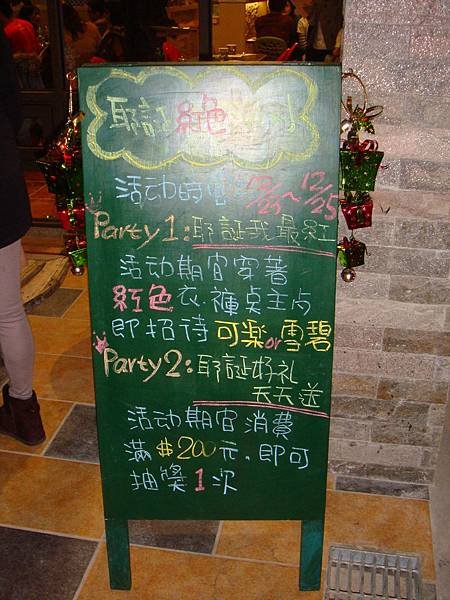 耶誕紅色
活动時間:12/23~12/25
Party 1:耶誕我最紅
活动期间穿著
紅色衣.褲桌主点
即招待可楽or雪碧
Party 2:耶誕好礼
天天送
活动期间消費
滿$200元.即可
抽獎1次